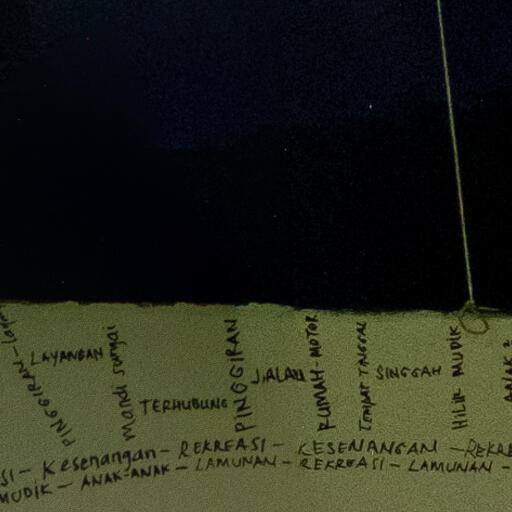 PINGGIRAN
LAYANGAN
mandi sungai
TERHUBUNG
PINGGIRAN
JALAN
RUMAH-MOTOR
TEMPAT TANGGAL
SINGGAH
HILIR MUDIK
ANAK
SI - Kesenangan - REKREASI - KESENANGAN - REKRE
MUDIK - ANAK-ANAK - LAMUNAN - REKREASI - LAMUNAN -